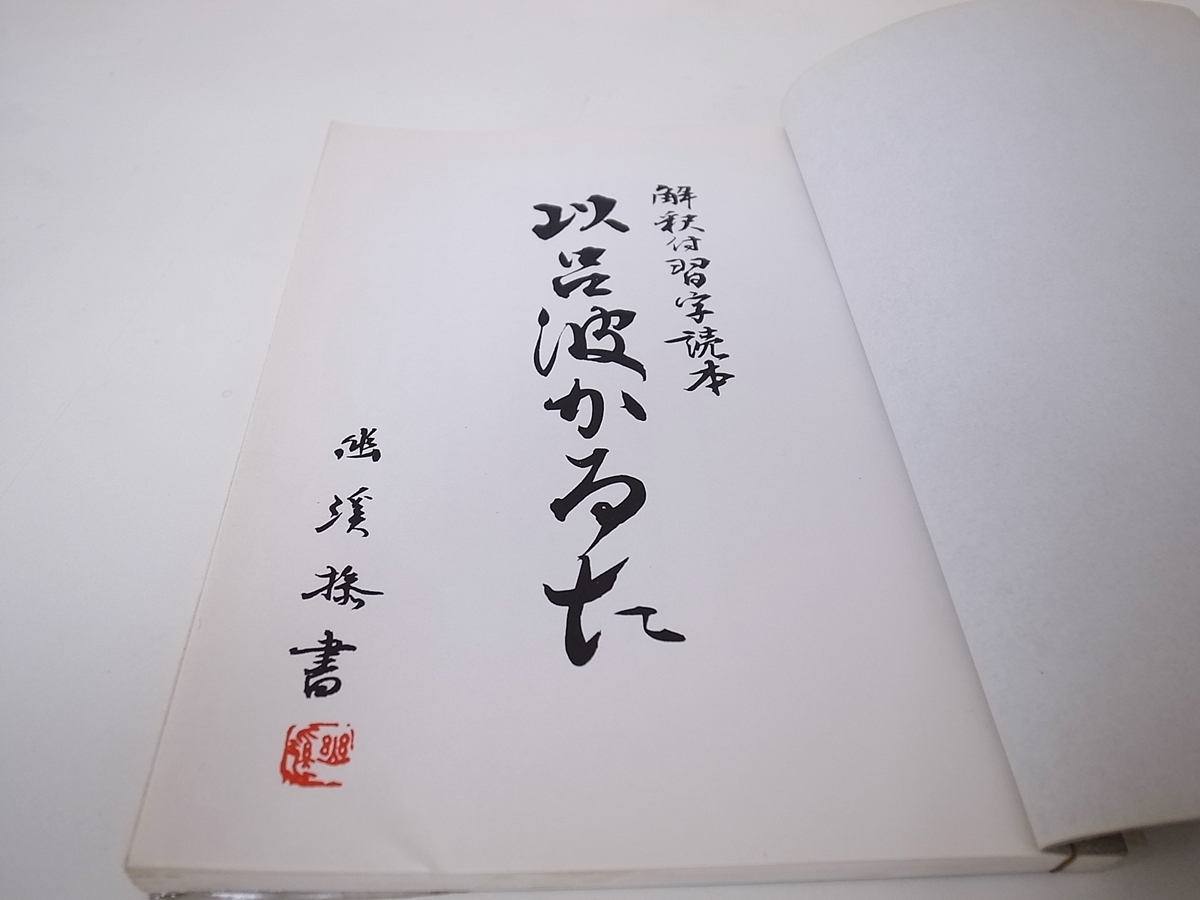 解釈付習字読本
以呂波かるた
幽渓操書